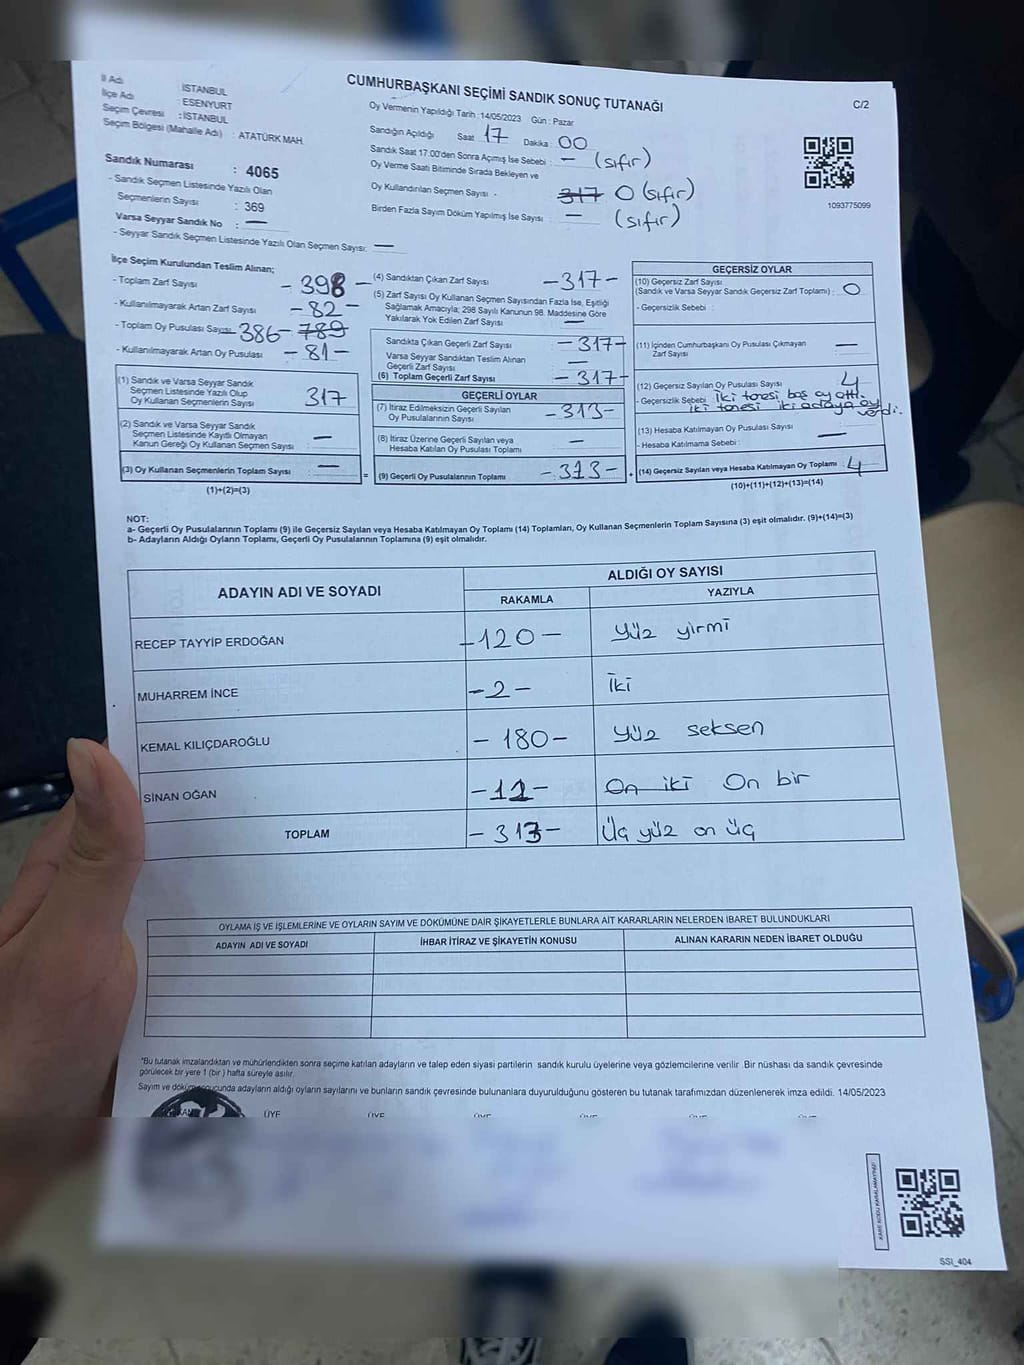 CUMHURBAŞKANI SEÇİMİ SANDIK SONUÇ TUTANAĞI
C/2
İl Adı : İSTANBUL
İlçe Adı : ESENYURT
Seçim Çevresi : İSTANBUL
Seçim Bölgesi (Mahalle Adı) : ATATÜRK MAH
Sandık Numarası : 4065
- Sandık Seçmen Listesinde Yazılı Olan
Seçmenlerin Sayısı : 369
Varsa Seyyar Sandık No : —
- Seyyar Sandık Seçmen Listesinde Yazılı Olan Seçmen Sayısı: —
Oy Vermenin Yapıldığı Tarih :14/05/2023 Gün : Pazar
Sandığın Açıldığı Saat 17 Dakika : 00
Sandık Saat 17:00'den Sonra Açımış İse Sebebi : — (sıfır)
Oy Verme Saati Bitiminde Sırada Bekleyen ve
Oy Kullandırılan Seçmen Sayısı - 317 0 (sıfır)
Birden Fazla Sayım Döküm Yapılmış İse Sayısı — (sıfır)
1093775099
İlçe Seçim Kurulundan Teslim Alınan;
- Toplam Zarf Sayısı - 398 -
- Kullanılmayarak Artan Zarf Sayısı - 82 -
- Toplam Oy Pusulası Sayısı 386 - 789
- Kullanılmayarak Artan Oy Pusulası - 81 -
(1) Sandık ve Varsa Seyyar Sandık
Seçmen Listesinde Yazılı Olup
Oy Kullanan Seçmenlerin Sayısı 317
(2) Sandık ve Varsa Seyyar Sandık
Seçmen Listesinde Kayıtlı Olmayan
Kanun Gereği Oy Kullanan Seçmen Sayısı : —
(3) Oy Kullanan Seçmenlerin Toplam Sayısı : — =
(1)+(2)=(3)
(4) Sandıktan Çıkan Zarf Sayısı - 317 -
(5) Zarf Sayısı Oy Kullanan Seçmen Sayısından Fazla İse, Eşitliği
Sağlamak Amacıyla; 298 Sayılı Kanunun 98. Maddesine Göre
Yakılarak Yok Edilen Zarf Sayısı —
Sandıkta Çıkan Geçerli Zarf Sayısı - 317 -
Varsa Seyyar Sandıktan Teslim Alınan
Geçerli Zarf Sayısı —
(6) Toplam Geçerli Zarf Sayısı - 317 -
GEÇERLİ OYLAR
(7) İtiraz Edilmeksizin Geçerli Sayılan
Oy Pusulalarının Sayısı - 313 -
(8) İtiraz Üzerine Geçerli Sayılan veya
Hesaba Katılan Oy Pusulası Toplamı —
(9) Geçerli Oy Pusulalarının Toplamı - 313 - +
GEÇERSİZ OYLAR
(10) Geçersiz Zarf Sayısı
(Sandık ve Varsa Seyyar Sandık Geçersiz Zarf Toplamı) : 0
- Geçersizlik Sebebi :
(11) İçinden Cumhurbaşkanı Oy Pusulası Çıkmayan
Zarf Sayısı —
(12) Geçersiz Sayılan Oy Pusulası Sayısı 4
- Geçersizlik Sebebi İki tanesi boş oy attı.
iki tanesi iki adaya oy verdi.
(13) Hesaba Katılmayan Oy Pusulası Sayısı —
- Hesaba Katılmama Sebebi :
(14) Geçersiz Sayılan veya Hesaba Katılmayan Oy Toplamı : 4
(10)+(11)+(12)+(13)=(14)
NOT:
a- Geçerli Oy Pusulalarının Toplamı (9) ile Geçersiz Sayılan veya Hesaba Katılmayan Oy Toplamı (14) Toplamları, Oy Kullanan Seçmenlerin Toplam Sayısına (3) eşit olmalıdır. (9)+(14)=(3)
b- Adayların Aldığı Oyların Toplamı, Geçerli Oy Pusulalarının Toplamına (9) eşit olmalıdır.
ADAYIN ADI VE SOYADI
ALDIĞI OY SAYISI
RAKAMLA YAZIYLA
RECEP TAYYİP ERDOĞAN - 120 - Yüz yirmi
MUHARREM İNCE - 2 - İki
KEMAL KILIÇDAROĞLU - 180 - Yüz seksen
SİNAN OĞAN - 11 - On iki On bir
TOPLAM - 313 - Üç yüz on üç
OYLAMA İŞ VE İŞLEMLERİNE VE OYLARIN SAYIM VE DÖKÜMÜNE DAİR ŞİKAYETLERLE BUNLARA AİT KARARLARIN NELERDEN İBARET BULUNDUKLARI
ADAYIN ADI VE SOYADI İHBAR İTİRAZ VE ŞİKAYETİN KONUSU ALINAN KARARIN NEDEN İBARET OLDUĞU
*Bu tutanak imzalandıktan ve mühürlendikten sonra seçime katılan adayların ve talep eden siyasi partilerin sandık kurulu üyelerine veya gözlemcilerine verilir. Bir nüshası da sandık çevresinde
görülecek bir yere 1 (bir ) hafta süreyle asılır.
Sayım ve döküm sonucunda adayların aldığı oyların sayılarını ve bunların sandık çevresinde bulunanlara duyurulduğunu gösteren bu tutanak tarafımızdan düzenlenerek imza edildi. 14/05/2023
ÜYE ÜYE ÜYE ÜYE ÜYE ÜYE
KARE KODU KARALAMAYINIZ!
SSI_404